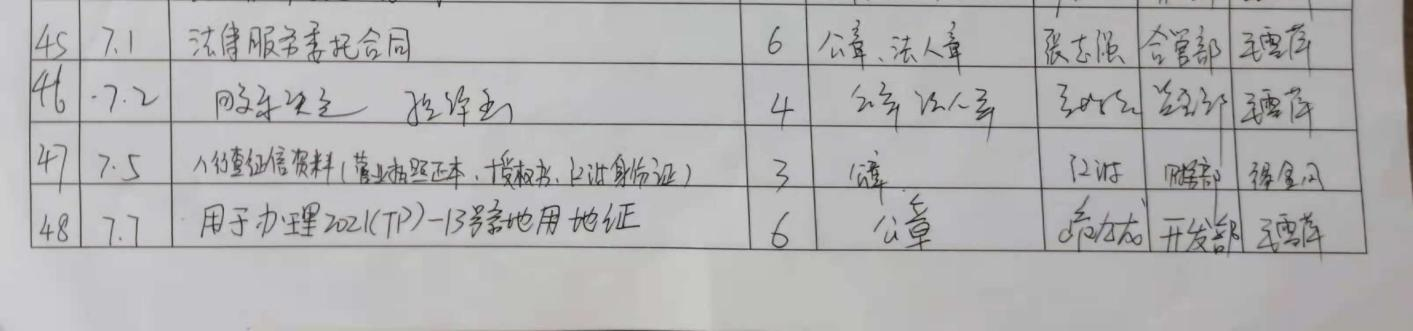 45 7.1 法律服务委托合同 6 公章、法人章 张志强 合管部 王雪萍
46 7.2 股东决定 授权书 4 公章 法人章 王雪萍
47 7.5 人行查征信资料(营业执照正本、授权书、江浩身份证) 3 公章
48 7.7 用于办理2021(TP)-13号宗地用地证 6 公章 开发部 王雪萍